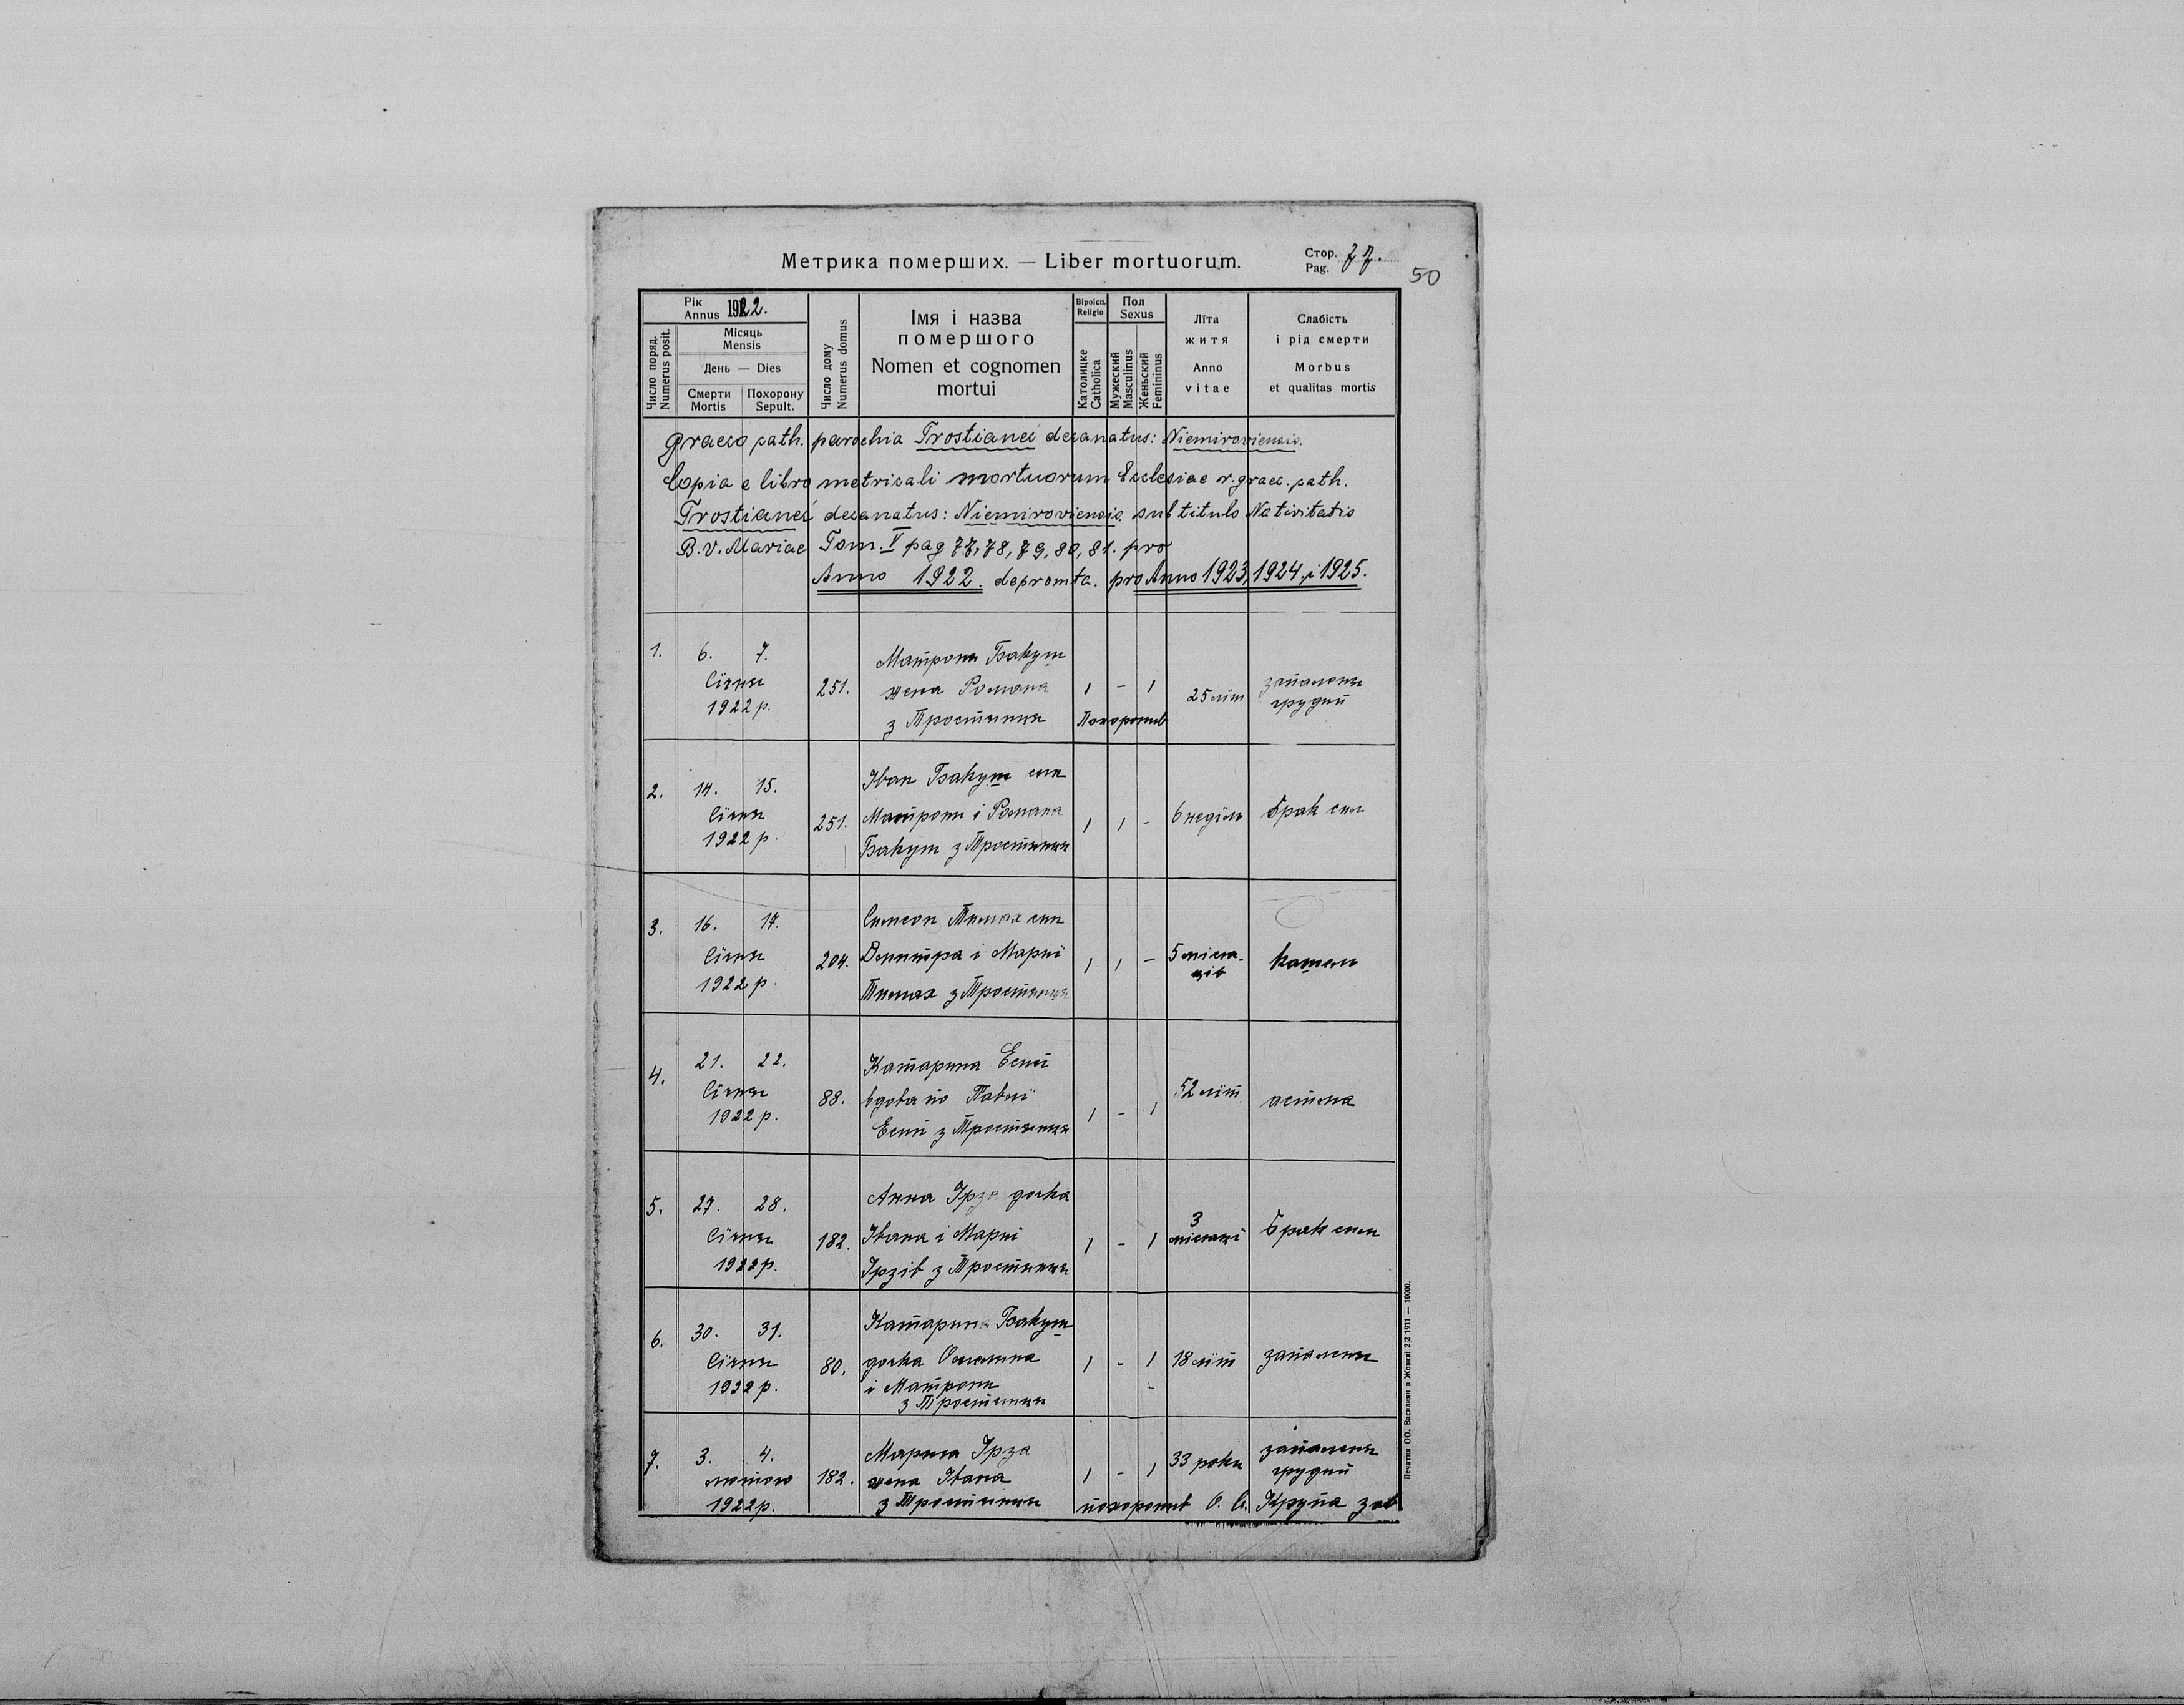 Метрика померших. — Liber mortuorum.
Стор. 77.
Pag.
50
Рік
Annus 1922.
Число поряд.
Numerus posit.
Місяць
Mensis
День — Dies
Смерти
Mortis
Похорону
Sepult.
Число дому
Numerus domus
Імя і назва
помершого
Nomen et cognomen
mortui
Віроісп.
Religio
Католицке
Catholica
Пол
Sexus
Мужеский
Masculinus
Женьский
Femininus
Літа
житя
Anno
vitae
Слабість
і рід смерти
Morbus
et qualitas mortis
graeco cath. parochia Trostianeć decanatus: Niemiroviensis.
Copia e libro metricali mortuorum Ecclesiae r. graec. cath.
Trostianeć decanatus: Niemiroviensis sub titulo Nativitatis
B. V. Mariae Tom. V pag 77, 78, 79, 80, 81. pro
Anno 1922. depromta. pro Anno 1923, 1924, i 1925.
1. 6. 7. Січня 1922 р. 251.
Матрона Бакум
жена Романа
з Тростянця
1 – 1
Похоронив
25 літ
запаленя
грудий
2. 14. 15. Січня 1922 р. 251.
Іван Бакум син
Матрони і Романа
Бакум з Тростянця
1 1 -
6 неділь
брак сил
3. 16. 17. Січня 1922 р. 204.
Симеон Тимах син
Дмитра і Мариї
Тимах з Тростянця
1 1 –
5 міся-
ців
кашель
4. 21. 22. Січня 1922 р. 88.
Катарина
вдова по
з Тростянця
1 - 1
52 літ
астма
5. 27. 28. Січня 1922 р. 182.
Анна Ірза дочка
Івана і Мариї
Ірзів з Тростянця
1 - 1
3
місяці
брак сил
6. 30. 31. Січня 1922 р. 80.
Катарина Бакум
дочка
і Матрони
з Тростянця
1 - 1
18 літ
запаленя
7. 3. 4. лютого 1922 р. 182.
Мария Ірза
жена Івана
з Тростянця
1 - 1
33 роки
запаленя
грудий
похоронив О. Крупа зав
Печатня ОО. Василиян в Жовкві 2|2 1911 — 10000.